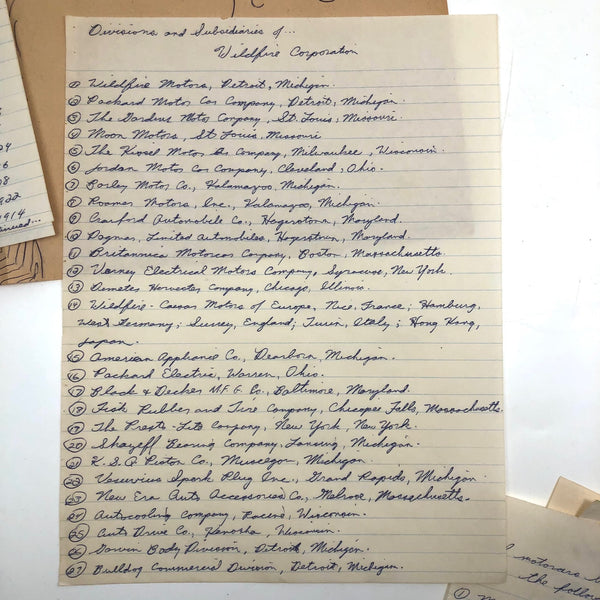 Divisions and Subsidiaries of...
Wildfire Corporation
① Wildfire Motors, Detroit, Michigan.
② Packard Motor Car Company, Detroit, Michigan.
③ The Gardens Motor Company, St. Louis, Missouri.
④ Moon Motors, St Louis, Missouri
⑤ The Kissel Motor Car Company, Milwaukee, Wisconsin.
⑥ Jordan Motor Car Company, Cleveland, Ohio.
⑦ Barley Motor Co., Kalamazoo, Michigan.
⑧ Roamer Motors, Inc., Kalamazoo, Michigan.
⑨ Crawford Automobile Co., Hagerstown, Maryland.
⑩ Dagmar, Limited Automobiles, Hagerstown, Maryland.
⑪ Britannica Motorcar Company, Boston, Massachusetts
⑫ Varney Electrical Motors Company, Syracuse, New York.
⑬ Demeter Harvester Company, Chicago, Illinois.
⑭ Wildfire - Caesar Motors of Europe, Nice, France; Hamburg,
West Germany; Surrey, England; Turin, Italy; Hong Kong,
Japan.
⑮ American Appliance Co., Dearborn, Michigan.
⑯ Packard Electric, Warren, Ohio.
⑰ Black & Decker M.F.G. Co., Baltimore, Maryland.
⑱ Fisk Rubber and Tire Company, Chicopee Falls, Massachusetts.
⑲ The Prest-Lite Company, New York, New York.
⑳ Bearing Company, Lansing, Michigan.
㉑ K.S.G. Piston Co., Muscegon, Michigan
㉒ Vesuvius Spark Plug Inc., Grand Rapids, Michigan.
㉓ New Era Auto Accessories Co., Melrose, Massachusetts.
㉔ Autocooling Company, Racine, Wisconsin.
㉕ Auto Drive Co., Kenosha, Wisconsin.
㉖ Body Division, Detroit, Michigan.
㉗ Bulldog Commercial Division, Detroit, Michigan.
1922
1914
motorcars
the
①